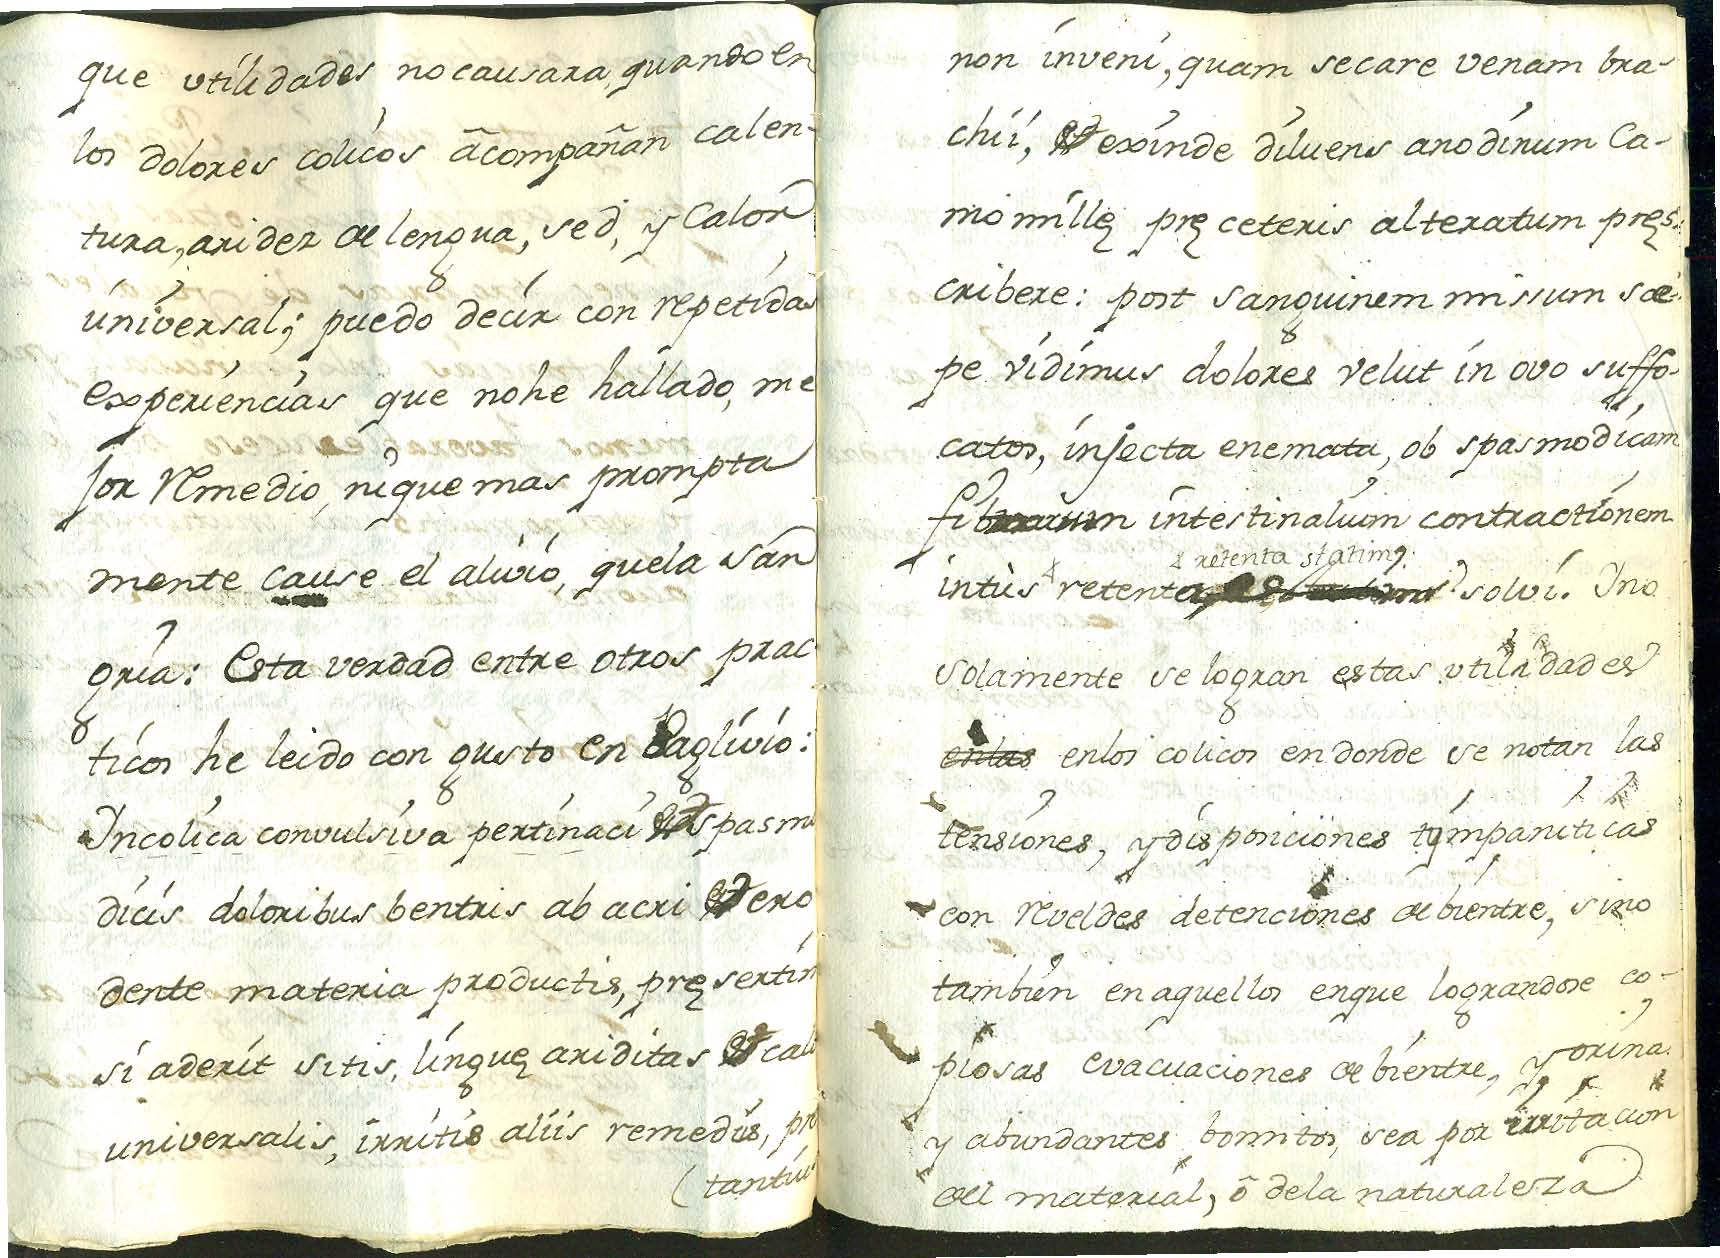 que utilidades no causara, quando en
los dolores colicos acompañan calen-
tura, aridez de lengua, sed, y Calor
universal; puedo decir con repetidas
experiencias que nohe hallado, me
jor remedio, ni que mas prompta
mente cause el alivio, quela San
gria: Esta verdad entre otros prac
ticos he leido con gusto en Baglivio:
In colica convulsiva pertinaci et spasmo
dicis doloribus bentris ab acri et ero
dente materia productis, pręsertim
si aderit sitis, linguę ariditas et calor
universalis, irritis aliis remediis, prę
(tantiu
non inveni, quam secare venam bra-
chii, et exinde diluens anodinum Ca-
momillę prę ceteris alteratum pręs-
cribere: post sanguinem missum sæ-
pe vidimus dolores velut in ovo suffo-
catos, injecta enemata, ob spasmodicam
fibrarum intestinalium contractionem
& retenta statimq.
intùs retenta solvi. I no
solamente se logran estas utilidades
enlas enlos colicos en donde se notan las
tensiones, y disposiciones tympaniticas
con reveldes detenciones de bientre, sino
tambien en aquellos enque lograndose co-
piosas evacuaciones de bientre, y orina
y abundantes bomitos, sea por irritacion
del material, ô dela naturaleza